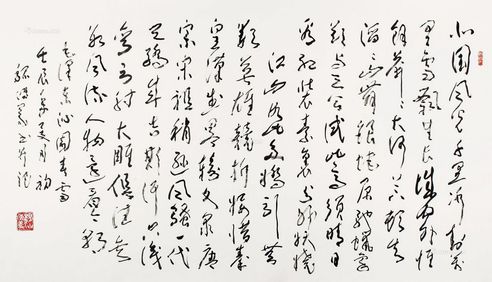 北国风光千里冰封万
里雪飘望长城内外惟
余莽莽大河上下顿失
滔滔山舞银蛇原驰蜡象
欲与天公试比高须晴日
看红装素裹分外妖娆
江山如此多娇引无
数英雄竞折腰惜秦
皇汉武略输文采唐
宗宋祖稍逊风骚一代
天骄成吉思汗只识
弯弓射大雕俱往矣
数风流人物还看今朝
毛泽东沁园春雪
壬辰年夏月初